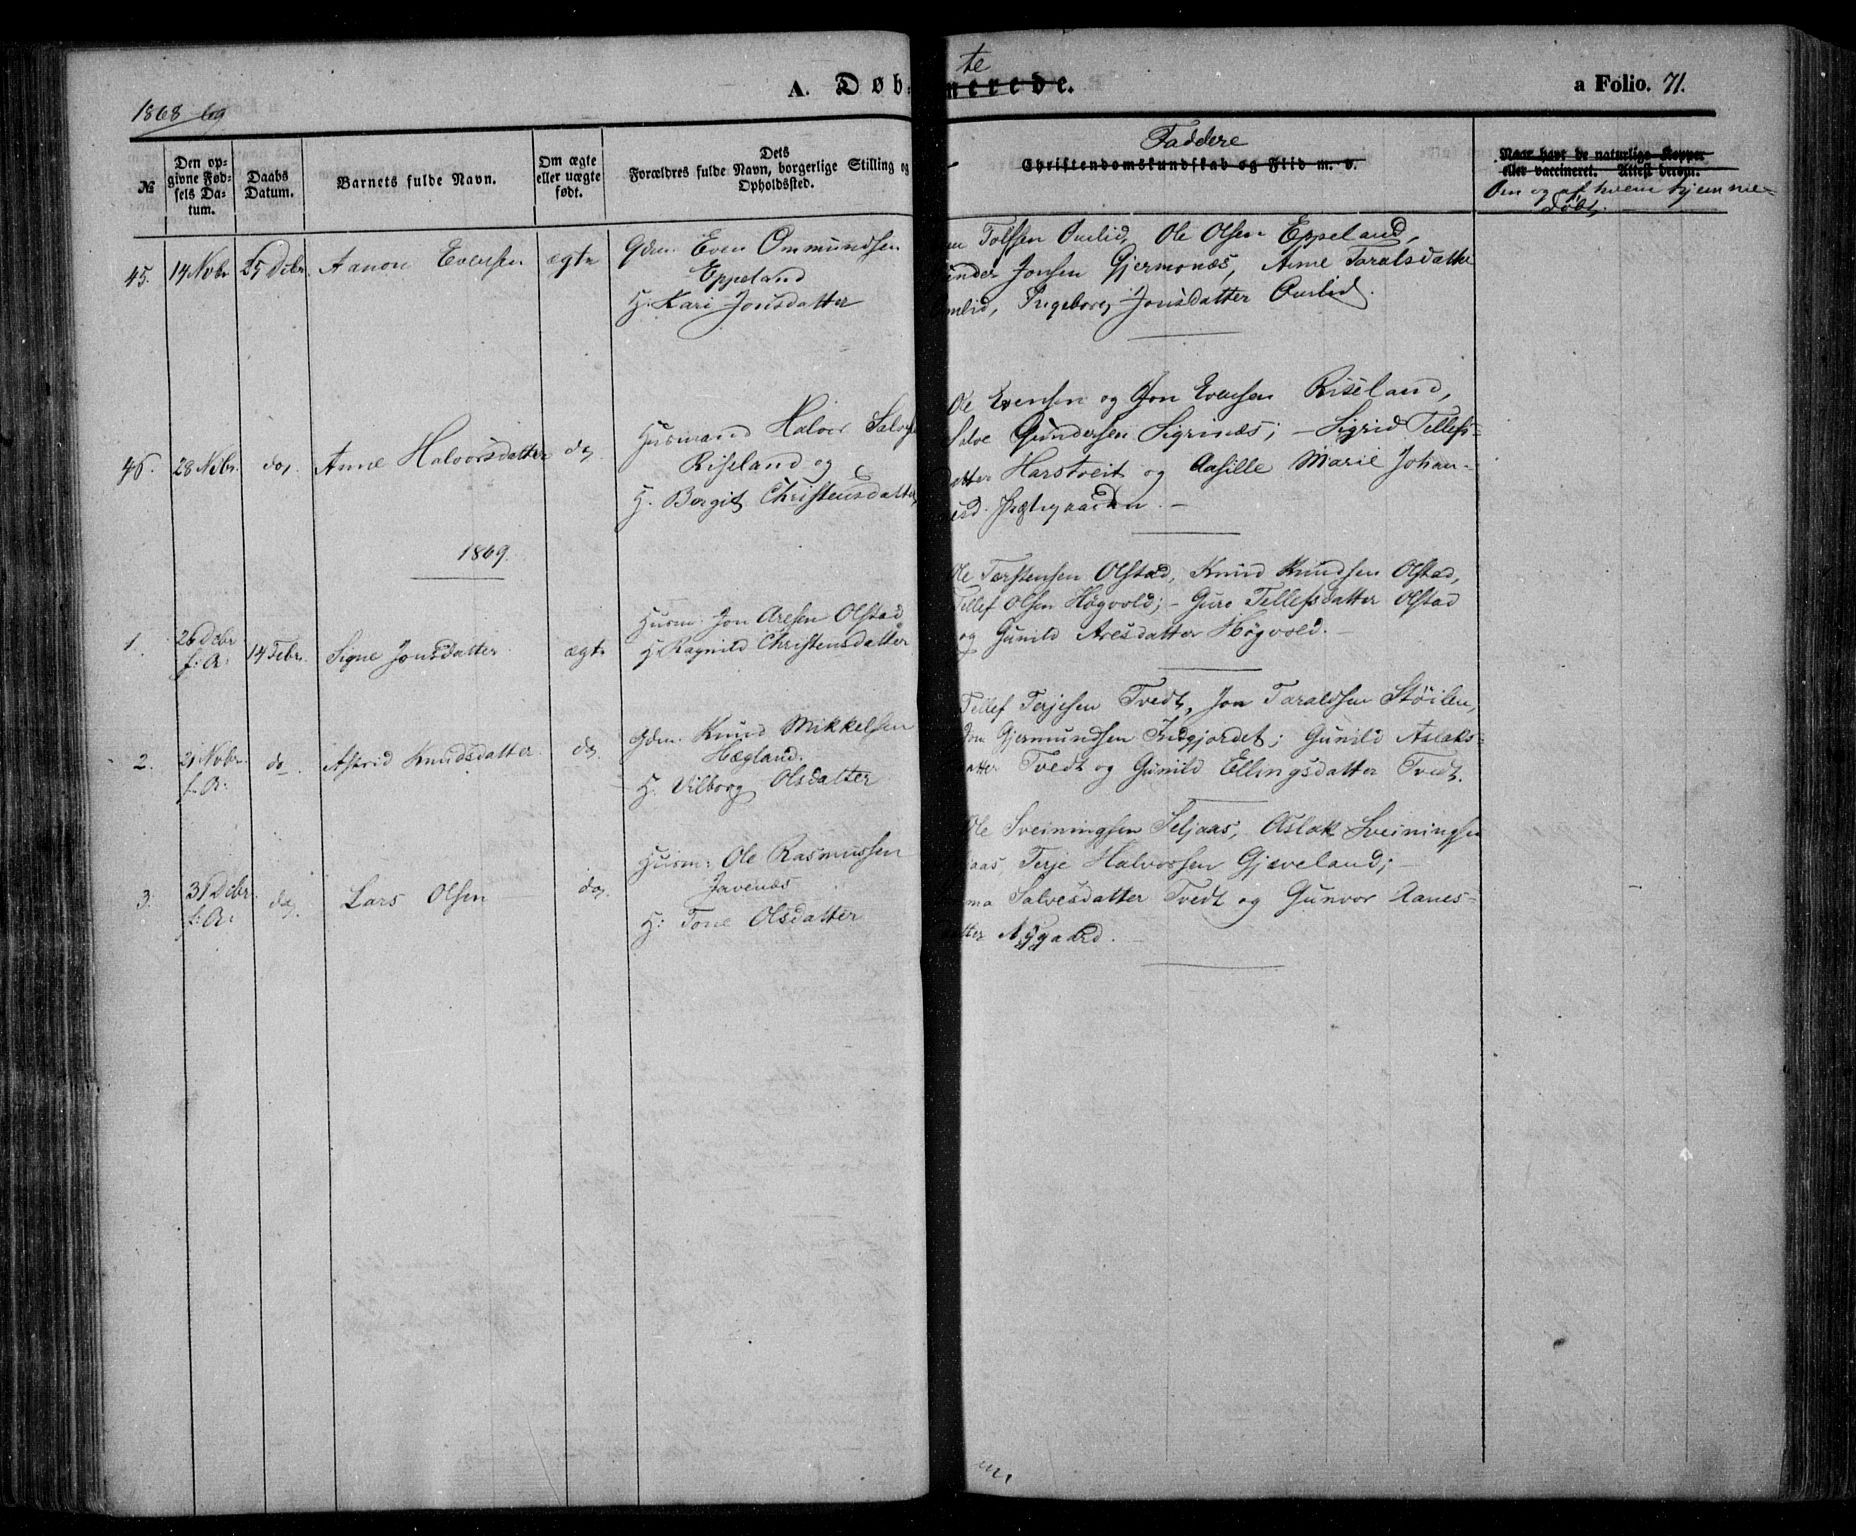 1868-69
A. Døbte
a Folio. 71.
№
Den opgivne Fødsels Datum.
Daabs Datum.
Barnets fulde Navn.
Om ægte eller uægte født.
Dets Forældres fulde Navn, borgerlige Stilling og Opholdssted.
Faddere
Christendomskundskab og Flid m. v.
Naar havt de naturlige Kopper eller vaccineret. Attest derom.
Om og af hvem hjemmedøbt.
45. 14 Novbr. 25 Decbr. Aanon Evensen ægte
Gdm. Even Ommundsen
Eppeland
H. Kari Jonsdatter
Tolfsen Omlid, Ole Olsen Eppeland,
Jonsen Gjermonæs, Anne Taralsdatter
Omlid, Ingeborg Jonsdatter Omlid.
46. 28 Nvbr. do, Anne Halvorsdatter do,
Husmand Halvor Salves
Riseland og
H. Borgit Christensdatter,
Ole Evensen og Jon Evensen Riseland,
Salve Gundersen Sigrinæs; - Sigrid Tellefs-
datter Harstveit og Aasille Marie Johan-
esd. Prætegaarden. -
1869.
1. 26 Decbr f: A: 14 Febr. Signe Jonsdatter. ægte
Husm: Jon Aresen Olstad
H. Ragnild Christensdatter
Ole Torstensen Olstad, Knud Knudsen Olstad,
Tellef Olsen Høgvold; - Guro Tellefsdatter Olstad
og Gunild Aresdatter Høgvold. -
2. 21 Novbr. f. A: do. Astrid Knudsdatter do,
Gdm. Knud Mikkelsen
Hægland.
H. Vilborg Olsdatter
Tellef Terjesen Tvedt, Jon Taraldsen Stöilen,
Gjermundsen Indgjordet; Gunild Aslaks-
datter Tvedt og Gunild Ellingsdatter Tvedt.
3. 31 Decbr f: A: do, Lars Olsen do,
Husm: Ole Rasmussen
Javenæs
H: Tone Olsdatter
Ole Sveiningsen Seljaas, Aslak Sveiningsen
aas, Terje Halvorsen Gjæveland; -
Salvesdatter Tvedt og Gunvor Aanes-
datter Nygaard. -